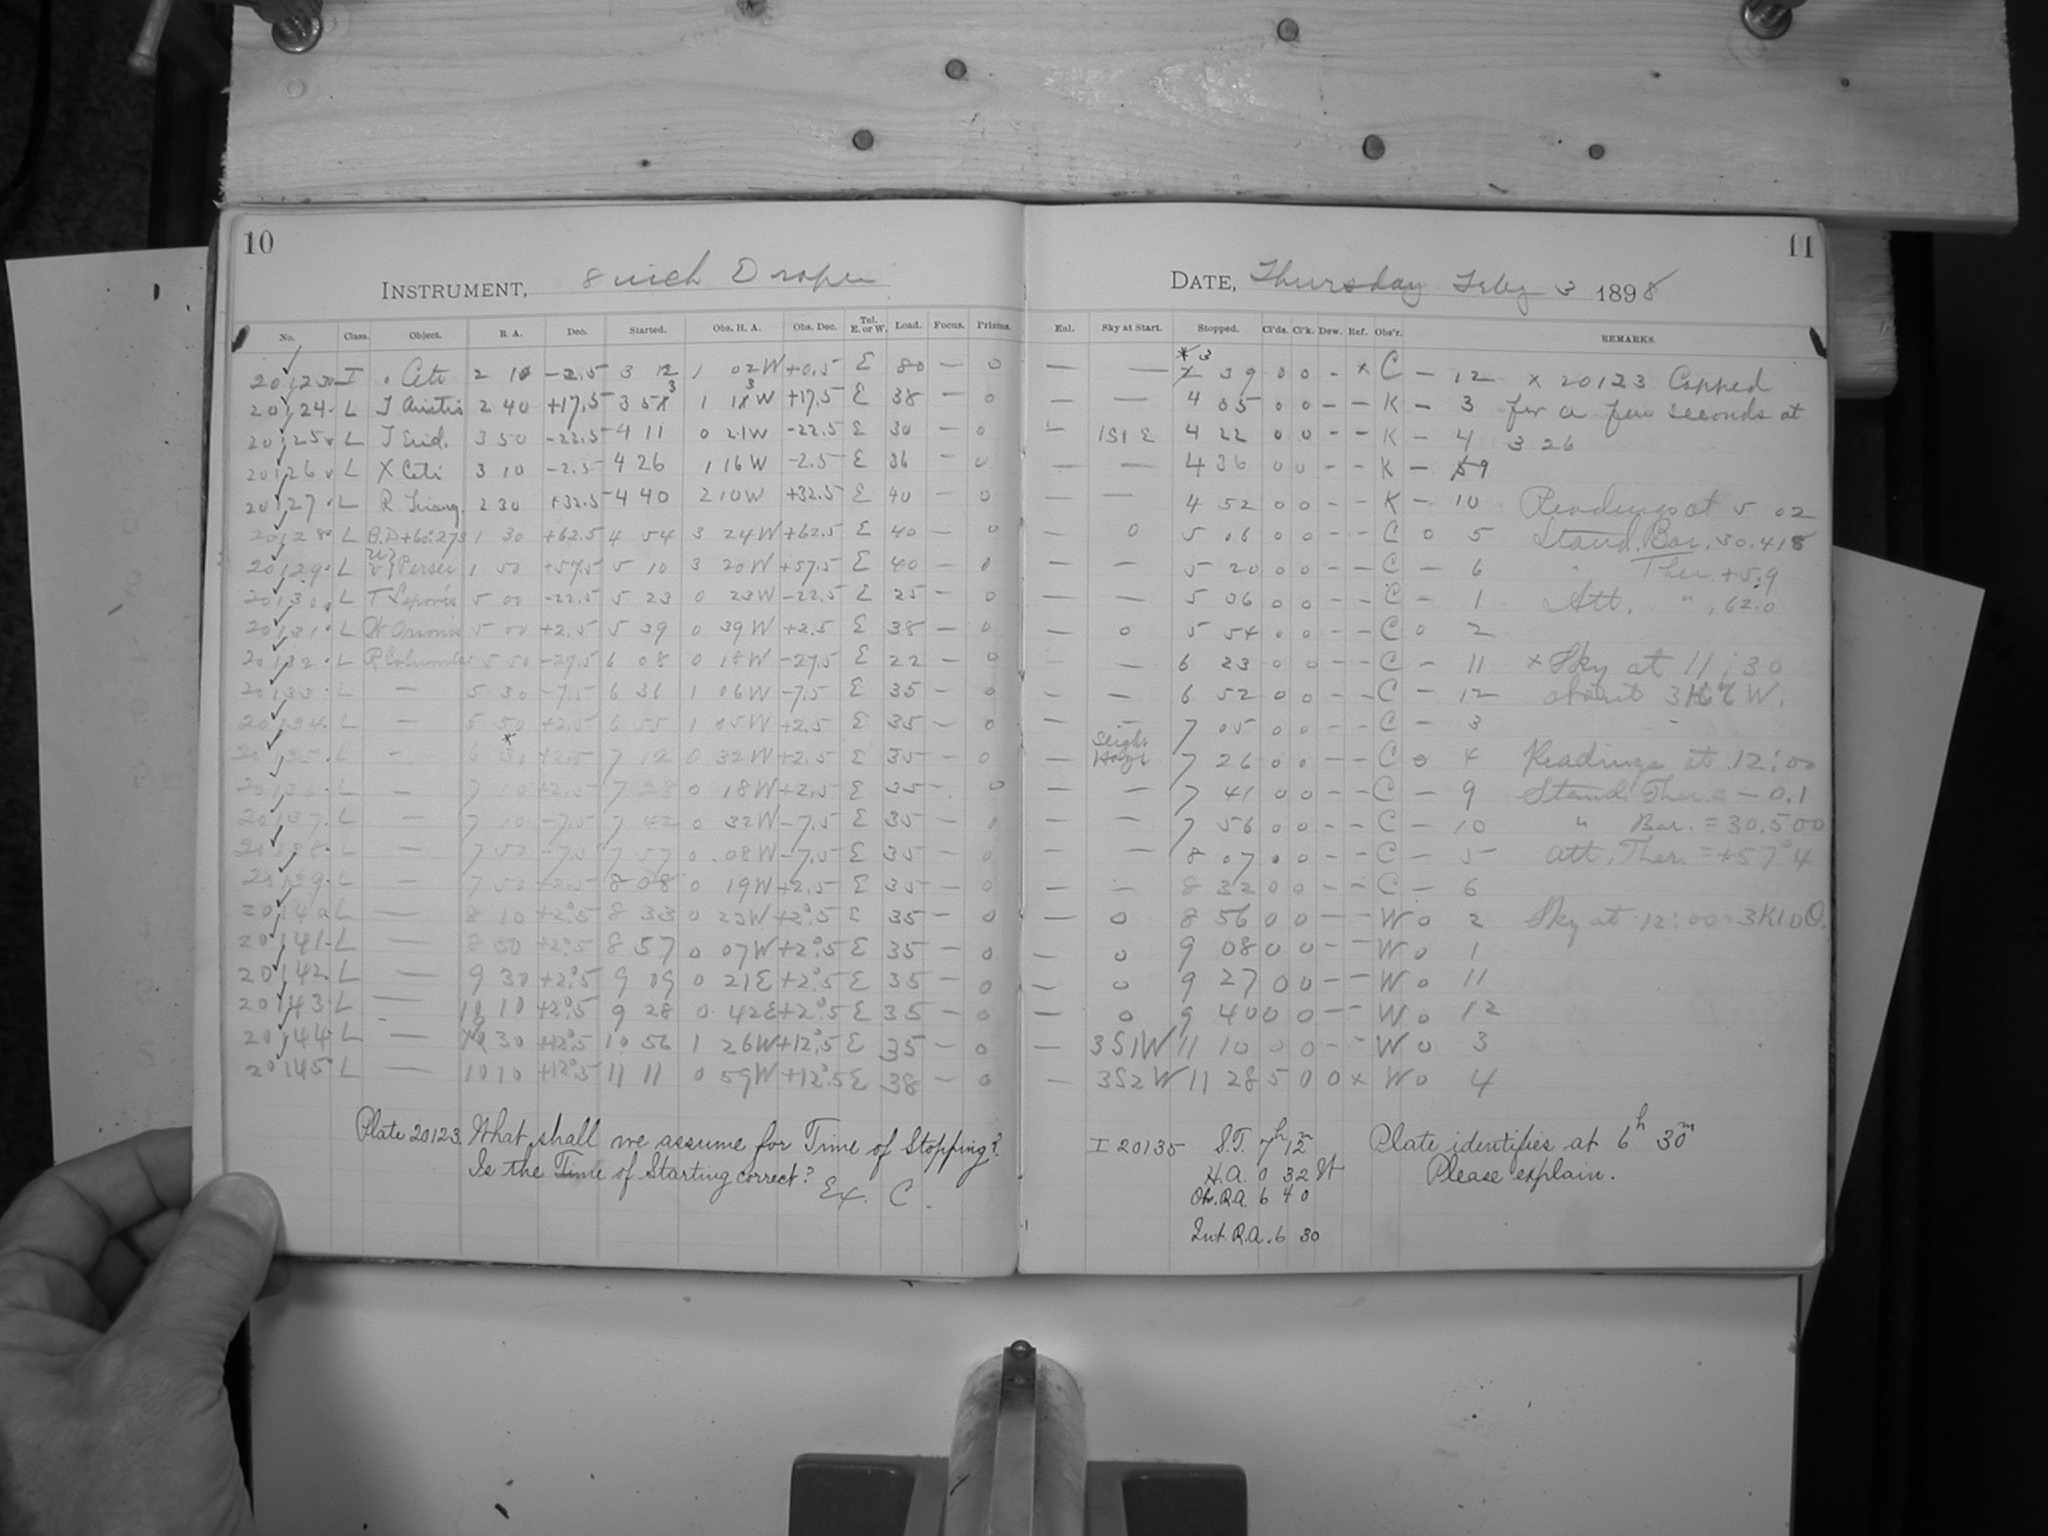 10
INSTRUMENT, 8 inch Draper
No. Class. Object. R. A. Dec. Started. Obs. H. A. Obs. Dec. Tel. E. or W. Load. Focus. Prisms.
20123 I o Ceti 2 10 -2.5 3 12 1 02W +0.5 E 80 — 0
20124 L T Arietis 2 40 +17.5 3 53 1 13W +17.5 E 38 — 0
20125 L T Erid. 3 50 -22.5 4 11 0 21W -22.5 E 30 — 0
20126 L X Ceti 3 10 -2.5 4 26 1 16W -2.5 E 36 — 0
20127 L R Triang. 2 30 +32.5 4 40 2 10W +32.5 E 40 — 0
20128 L B.D+60°.273 1 30 +62.5 4 54 3 24W +62.5 E 40 — 0
20129 L Persei 1 50 +57.5 5 10 3 20W +57.5 E 40 — 0
20130 L T Leporis 5 00 -22.5 5 23 0 23W -22.5 E 25 — 0
20131 L W Orionis 5 00 +2.5 5 39 0 39W +2.5 E 38 — 0
20132 L R Columba 5 50 -27.5 6 08 0 18W -27.5 E 22 — 0
20133 L — 5 30 -7.5 6 36 1 06W -7.5 E 35 — 0
20134 L — 5 50 +2.5 6 55 1 05W +2.5 E 35 — 0
20135 L — 6 30 +2.5 7 12 0 32W +2.5 E 35 — 0
20136 L — 7 10 +2.5 7 28 0 18W +2.5 E 35 — 0
20137 L — 7 10 -7.5 7 42 0 32W -7.5 E 35 — 0
20138 L — 7 50 -7.5 7 57 0 08W -7.5 E 35 — 0
20139 L — 7 50 +2.5 8 08 0 19W +2.5 E 35 — 0
20140 L — 8 10 +2°.5 8 33 0 23W +2°.5 E 35 — 0
20141 L — 8 50 +2°.5 8 57 0 07W +2°.5 E 35 — 0
20142 L — 9 30 +2°.5 9 09 0 21E +2°.5 E 35 — 0
20143 L — 10 10 +2°.5 9 28 0 42E +2°.5 E 35 — 0
20144 L — 30 +12°.5 10 56 1 26W +12°.5 E 35 — 0
20145 L — 10 10 +12°.5 11 11 0 59W +12°.5 E 38 — 0
Plate 20123. What shall we assume for Time of Stopping?
Is the Time of Starting correct?
Ex. C.
11
DATE, Thursday Feby 3 1898
Enl. Sky at Start. Stopped. Cl'ds. Cl'k. Dew. Ref. Obs'r. REMARKS.
— — * 3 39 0 0 - x C — 12 x 20123 Capped
— — 4 05 0 0 - - K — 3 for a few seconds at
— 1S1E 4 22 0 0 - - K — 4 3 26
— — 4 36 0 0 - - K — 9
— — 4 52 0 0 - - K — 10 Readings at 5 02
0 5 06 0 0 - - C 0 5 Stand. Bar. 30.418
— — 5 20 0 0 - - C — 6 " Ther. +5.9
— — 5 36 0 0 - - C — 1 Att. " , 62.0
— 0 5 54 0 0 - - C 0 2
— — 6 23 0 0 - - C — 11 x Sky at 11:30
— — 6 52 0 0 - - C — 12 about W.
— — 7 05 0 0 - - C — 3
— Slight Haze 7 26 0 0 - - C 0 4 Readings at 12:00
— — 7 41 0 0 - - C — 9 Stand. Ther. = -0.1
— — 7 56 0 0 - - C — 10 " Bar. = 30.500
— — 8 07 0 0 - - C — 5 Att. Ther. = +57°.4
— — 8 32 0 0 - - C — 6
— 0 8 56 0 0 - - W 0 2 Sky at 12:00 =
— 0 9 08 0 0 - - W 0 1
— 0 9 27 0 0 - - W 0 11
— 0 9 40 0 0 - - W 0 12
— 3S1W 11 10 0 0 - - W 0 3
— 3S2W 11 28 5 0 0 x W 0 4
I 20135 S.T. 7h 12m Plate identifies at 6h 30m
H.A. 0 32 W Please explain.
Obs. R.A. 6 40
Int. R.A. 6 30